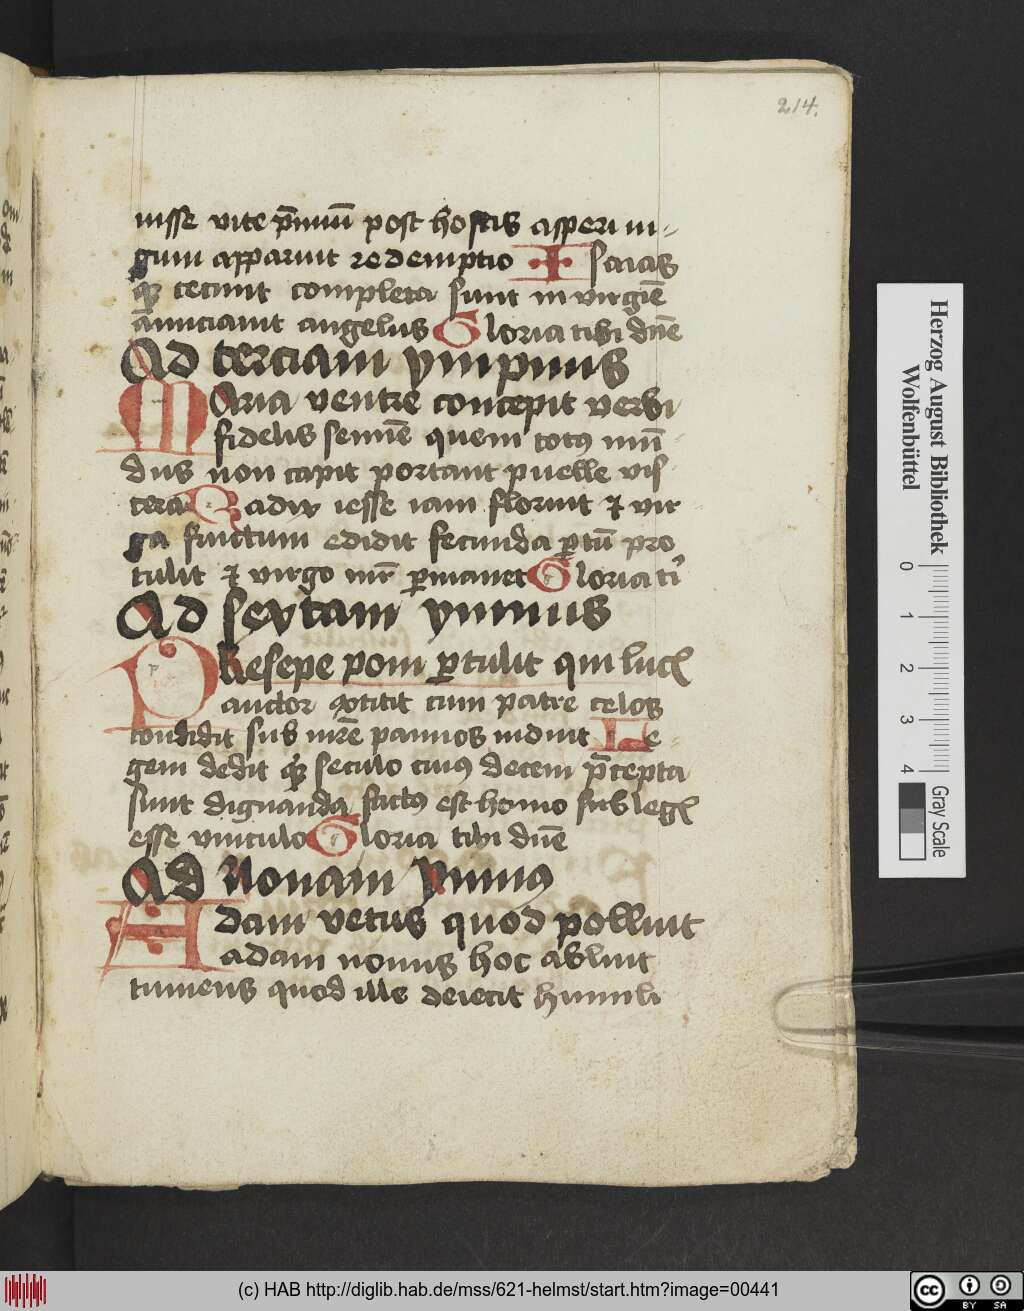 214.
nisse vite p̄miu᷎ post hostis asperi iu-
gum apparuit redemptio Isaias
q̄ cecinit completa sunt in virgīe
ānunciauit angelus Gloria tibi dn̄e
Ad terciam ympnus
MAria ventre concepit verbi
fidelis semīe quem totꝰ mūn
dus non capit portant puelle vis
cera Radix iesse iam floruit ⁊ vir
ga fructum edidit fecunda ꝑtū pro
tulit ⁊ virgo mr̄ ꝑmanet Gloria ti
Ad sextam ymnus
PResepe poni ꝑtulit qui lucis
auctor extitit cum patre celos
condidit sub mr̄e pannos induit Le
gem dedit q̄ seculo cuiꝰ decem p̄cepta
sunt dignando factꝰ est homo sub legis
esse vinculo Gloria tibi dn̄e
Ad Nonam Ymnus
ADam vetus quod polluit
adam nouus hoc abluit
tumens quod ille deiecit humili
Herzog August Bibliothek
Wolfenbüttel
0 1 2 3 4
Gray Scale
(c) HAB http://diglib.hab.de/mss/621-helmst/start.htm?image=00441
cc BY SA